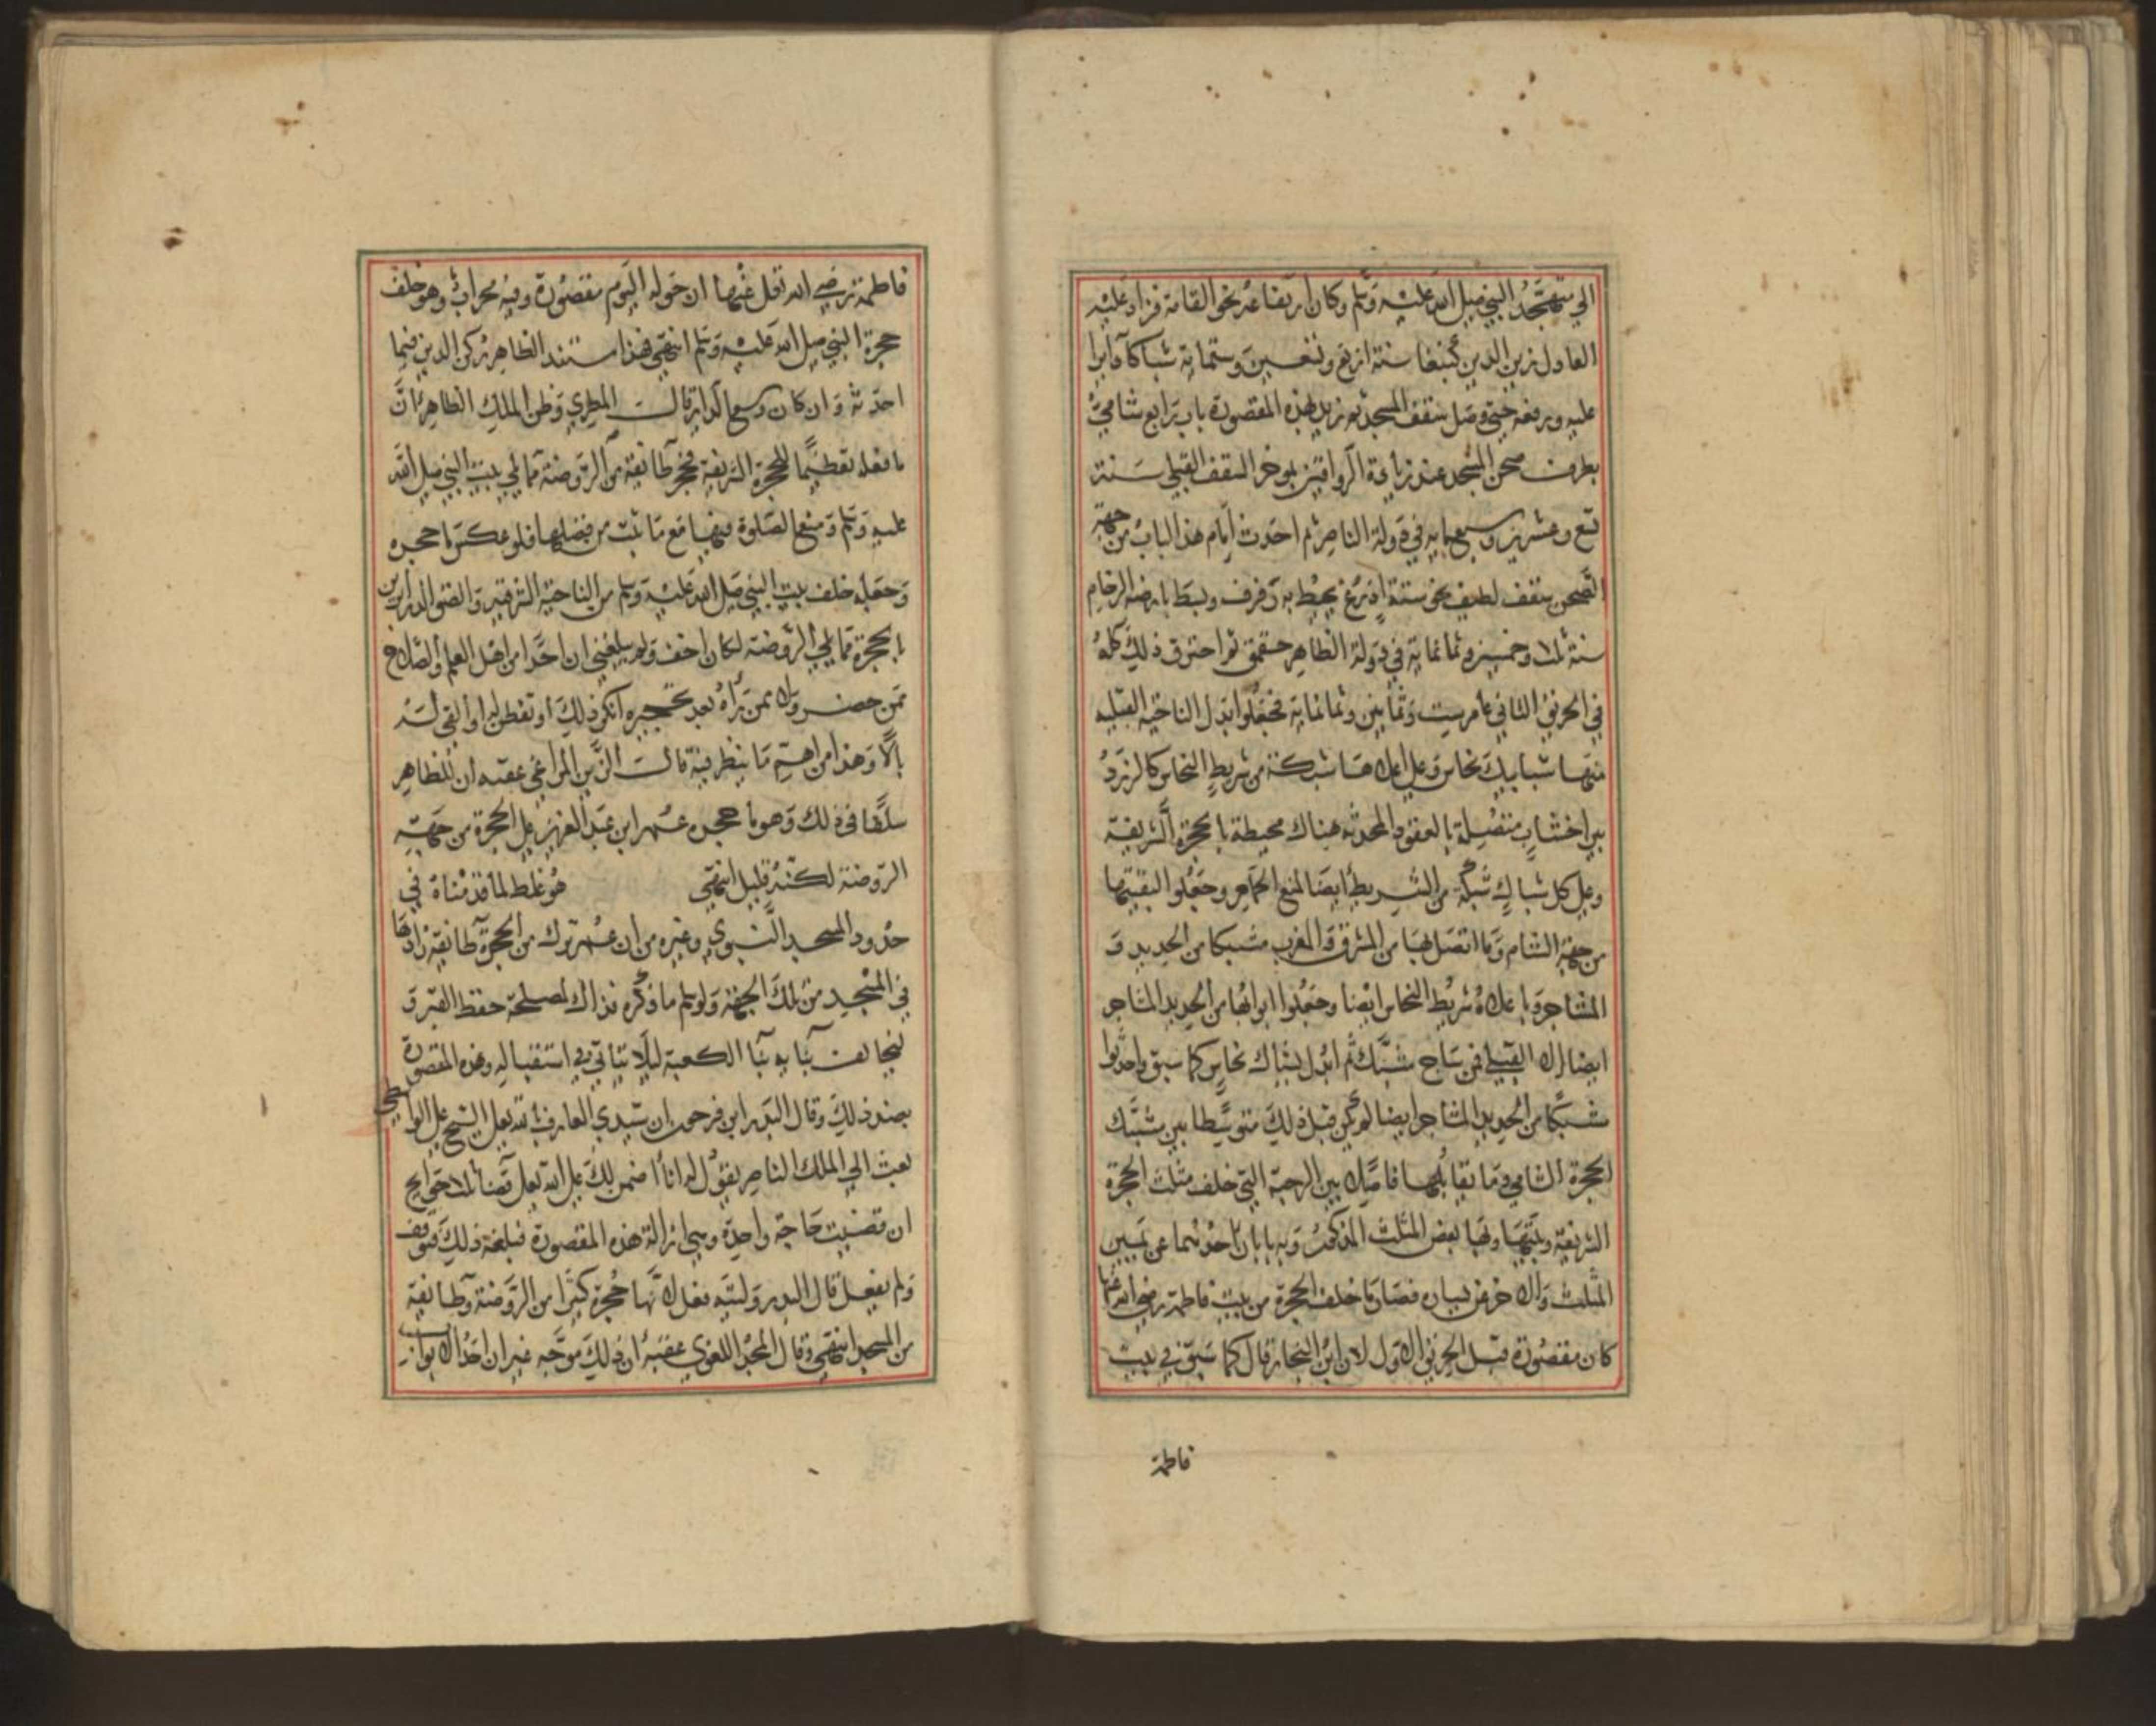 الي متهجد النبي صلى الله عليه وسلم وكان ارتفاعه نحو القامة فزاد عليه
العادل زين الدين كتبغا سنة اربع وتسعين وستماية شباكا دايرا
عليه ورفعه حتى وصل سقف المسجد ثم زيد لهذه المقصورة باب رابع شامي
بطرف صحن المسجد عند زيادة الرواقين بموخر السقف القبلي سنة
تسع وعشرين وسبعماية في دولة الناصر ثم احدث امام هذا الباب من جهة
الصحن سقف لطيف نحو ستة اذرع يحيط به رفرف وبسط بارضه الرخام
سنة ثلاث وخمسين وثمانماية في دولة الظاهر جقمق ثم احترق ذلك كله
في الحريق الثاني عام ست وثمانين وثمانماية فجعلوا بدل الناحية القبلية
منها شبابيك نحاس وعلى اعلاها شبكة من شريط النحاس كالزرد
بين اخشاب متصلة بالعقود المحدثه هناك محيطة بالحجرة الشريفة
وعلى كل شباك شبكة من الشريط ايضا لمنع الحمام وجعلوا البقيتها
من جهة الشام وما اتصل بها من المشرق والمغرب مشبكا من الحديد و
المشاجر وباعلاه شريط النحاس ايضا وجعلوا ابوابها من الحديد المشاجر
ايضا الا القبلي فمن ساج مشبك ثم ابدل بشباك نحاس كما سبق واحدثوا
مشبكا من الحديد المشاجر ايضا لم يكن قبل ذلك متوسطا بين مشبك
الحجرة الشامي وما يقابلها فاصلا بين الرحبة التي خلف مثلث الحجرة
الشريفة وبينها وبها بعض المثلث المذكور وبه بابان احدهما عن يمين
المثلث والاخر عن يسار فصار ما خلف الحجرة من بيت فاطمة رضي الله عنها
كان مقصورة قبل الحريق الاول لان ابن النجار قال كما سبق في بيت
فاطمة
فاطمة رضي الله تعالى عنها ان حوله اليوم مقصورة وفيه محراب وهو خلف
حجرة النبي صلى الله عليه وسلم انتهى فهذا مستند الظاهر ركن الدين فيما
احدثه وان كان وسع الداير قالــت المطري وظن الملك الظاهر ان
ما فعله تعظيما للحجرة الشريفة فحجر طايفة من الروضة مما يلي بيت النبي صلى الله
عليه وسلم ومنع الصلوة فيها مع ما ثبت من فضلها فلو عكس ما حجره
وجعله خلف بيت النبي صلى الله عليه وسلم من الناحية الشرقية والصق الدرابزين
بالحجرة مما يلي الروضة لكان اخف ولم يبلغني ان احدا من اهل العلم والصلاح
ممن حضر ولا ممن رآه بعد تحجيره انكر ذلك او تفطن له او القى له
بالا وهذا من اهم ما ينظر فيه قالت الزين المراغي عقبه ان للظاهر
سلفا في ذلك وهو ما حجره عمر ابن عبد العزيز على الحجرة من جهة
الروضة لكنه قليل انتهى هو غلط لما قدمناه في
حدود المسجد النبوي وغيره من ان عمر ترك من الحجرة طايفة زادها
في المسجد من تلك الجهة ولو سلم ما ذكره فذاك لمصلحة حفظ القبر و
ليخالف بنايه بنا الكعبة ليلا يتاتي في استقباله وهذه المقصورة
بضد ذلك وقال البدر ابن فرحون ان سيدي العارف بالله تعالى الشيخ علي الواسطي
بعث الي الملك الناصر يقول له انا اضمن لك على الله تعالى قضا ثلاث حوايج
ان قضيت حاجة واحدة وهي ازالة هذه المقصورة فبلغه ذلك فتوقف
ولم يفعل قال البدر وليته فعل لانها حجرة كثيرا من الروضة وطايفة
من المسجد انتهى وقال المجد اللغوي عقبه ان ذلك موجه غير ان احد الابواب